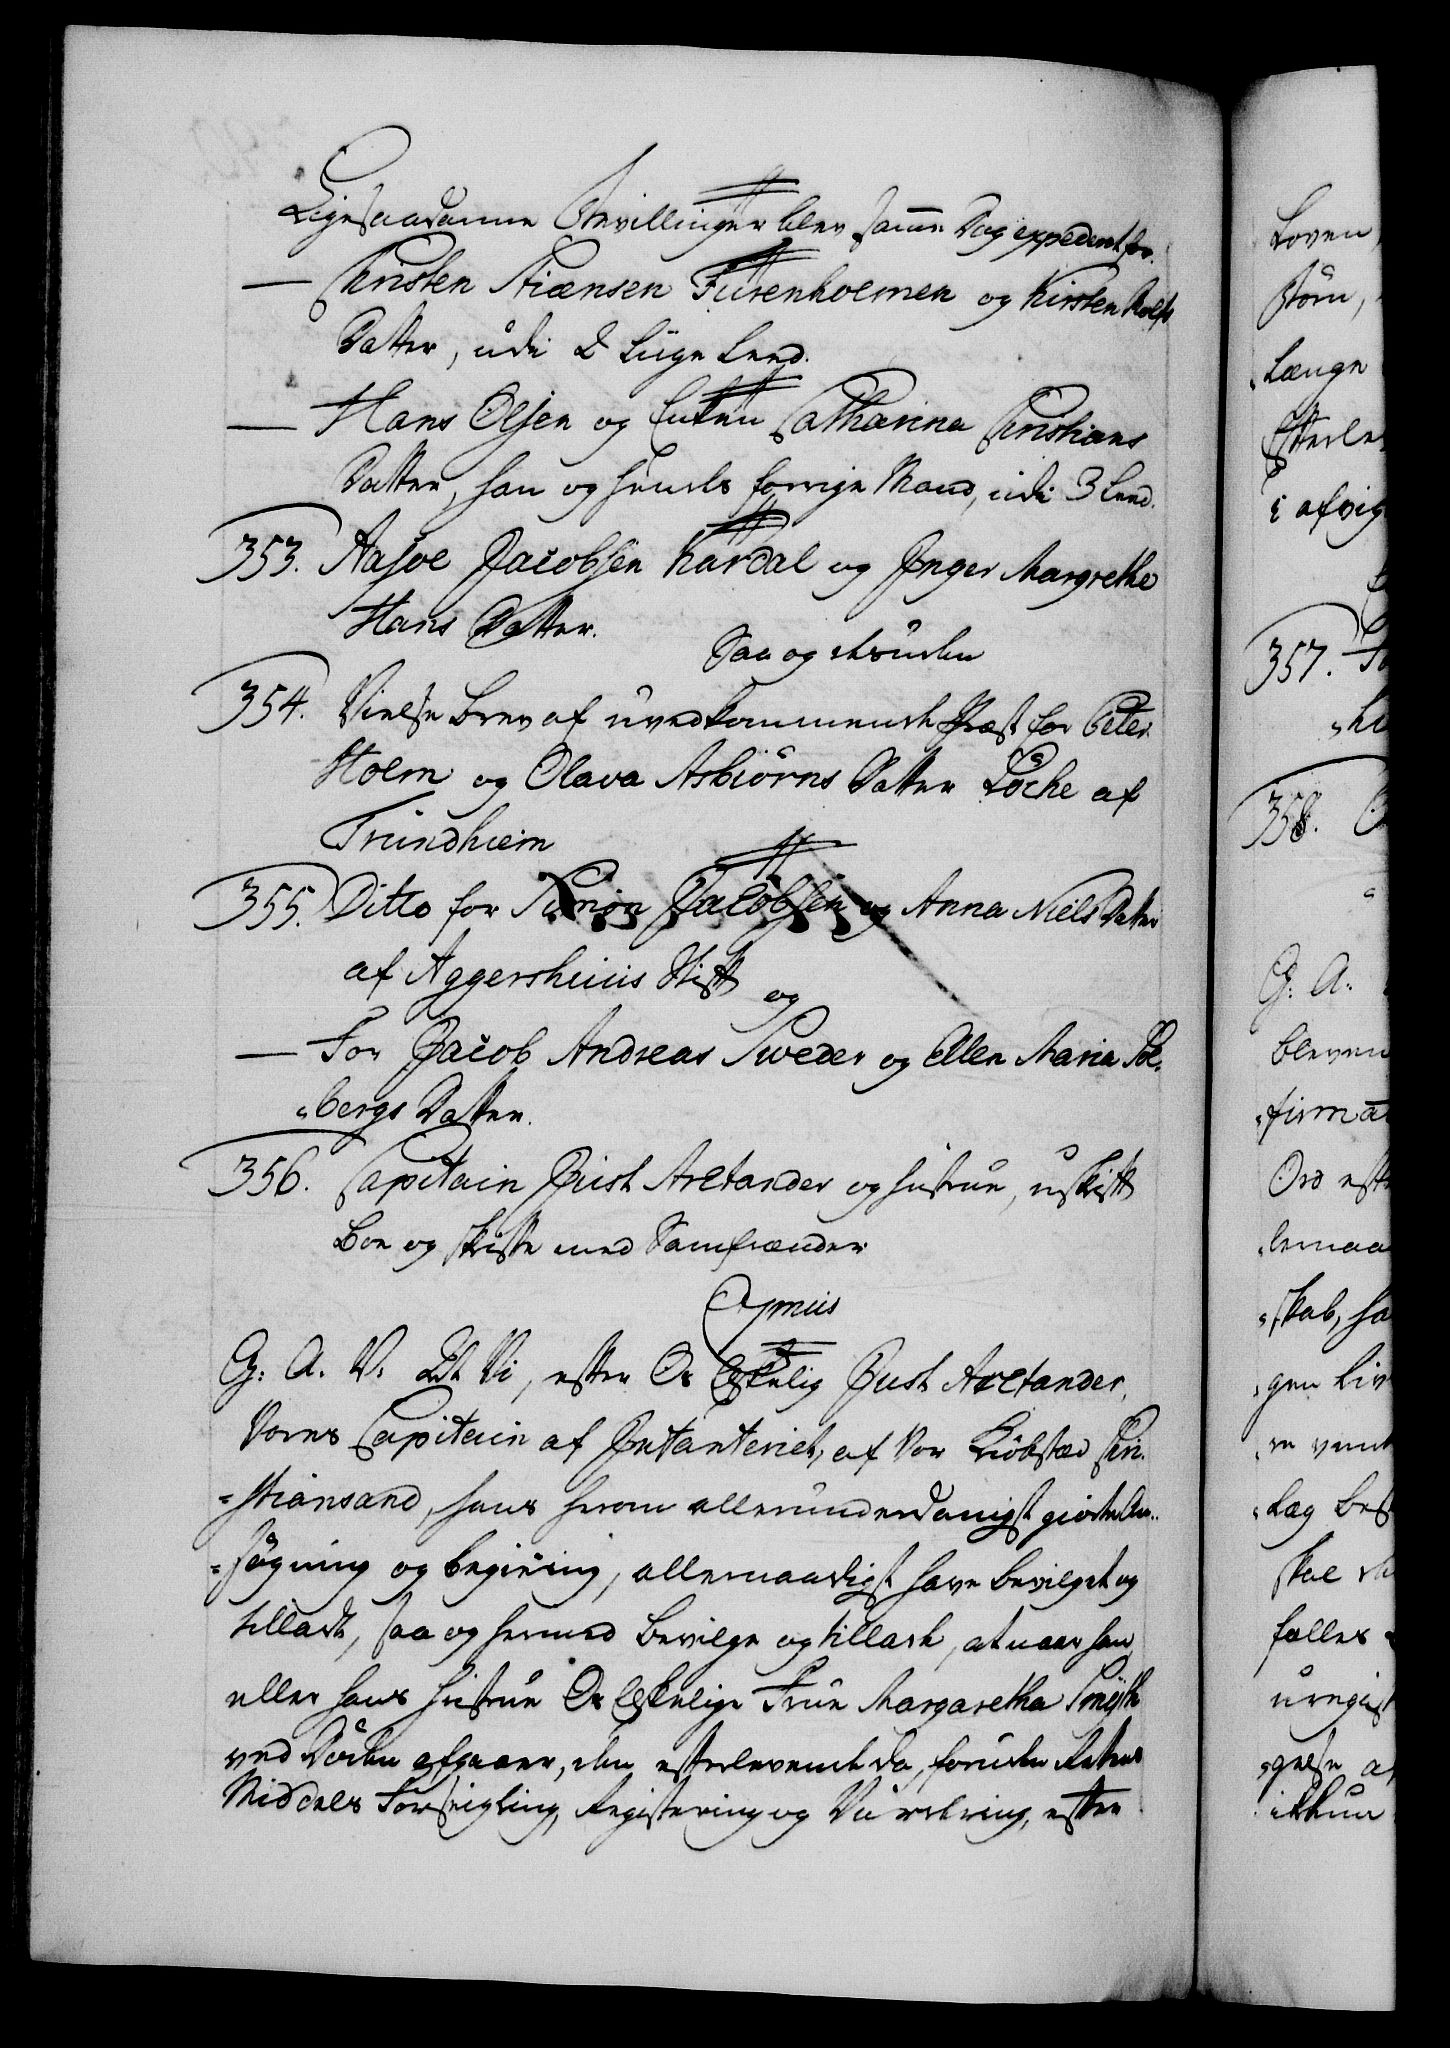 Ligesaadanne Bevillinger blev samme Dag expederet for.
— Christen Stiænsen Furenholmen og Kirsten Rolfs
Datter, udi 2 Liige Leed.
— Hans Olsen og Enken Catharina Christians
Datter, han og hendes forrige Mand, udi 3 Leed.
353. Aasoe Jacobsen Kardal og Inger Margrethe
Hans Datter.
Saa og desuden
354. Vielse Brev af uvedkommende Præst for Peter
Holm og Olava Asbiörns Datter Löche af
Trundhiem
355. Ditto for Simon Jacobsen og Anna Niels Datter
af Aggershuus Stift og
— For Jacob Andreas Sweder og Ellen Maria Sol-
bergs Datter.
356. Capitain Just Arctander og Hustrue, uskift
Boe og skifte med Samfrænder
G: A. V. At Vi, efter Os Elskelig Just Arctander,
Vores Capitain af Infanteriet, af Vor Kiöbstæd Chri-
=stiansand, hans herom allerunderdanigst giorde An-
=søgning og begiering, allernaadigst have bevilget og
tilladt, saa og hermed bevilge og tillade, at naar han
eller hans Hustrue Os Elskelige Frue Margaretha Smith
ved Døden afgaaer, den efterlevende da, foruden Rettens
Middels Forseigling, Registering og Vurdering, efter
Loven,
Börn,
Længe
Efterle
i afvig
357.
358.
G. A.
bleven
Ord efte
skab, ha
gen Liv
Lag bes
skal
falles